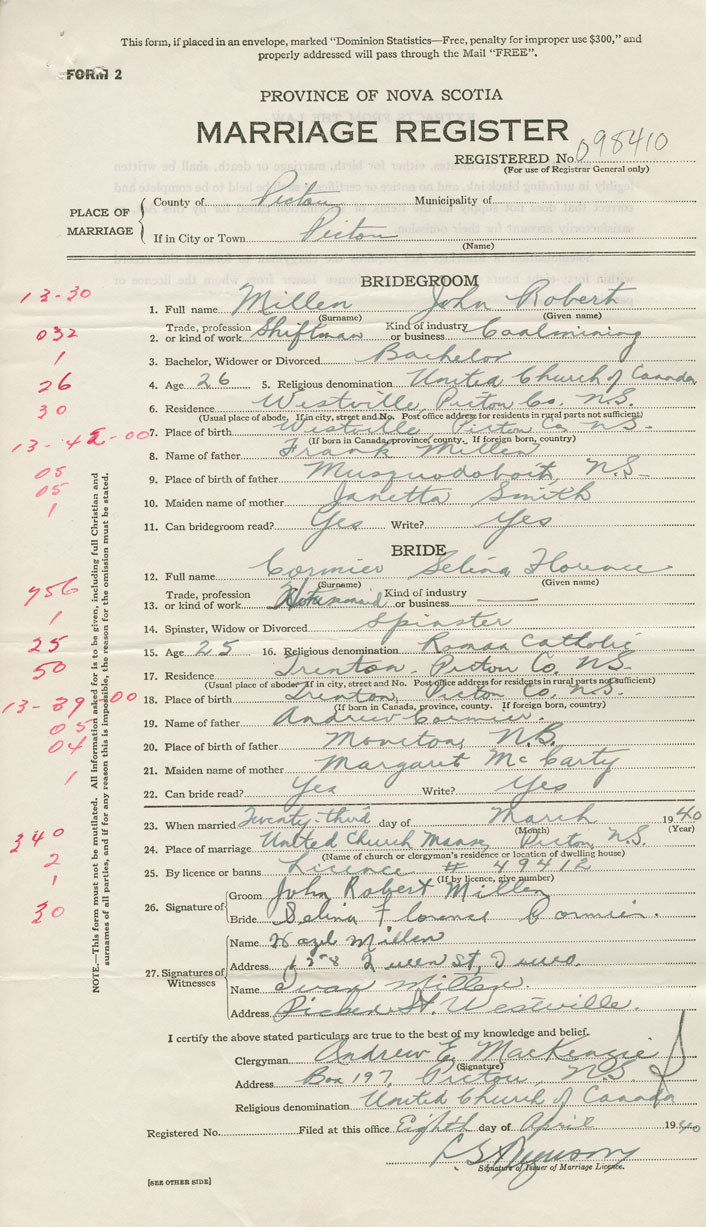 This form, if placed in an envelope, marked "Dominion Statistics—Free, penalty for improper use $300," and
properly addressed will pass through the Mail "FREE".
FORM 2
PROVINCE OF NOVA SCOTIA
MARRIAGE REGISTER
REGISTERED No. 098410
(For use of Registrar General only)
PLACE OF MARRIAGE
County of Pictou Municipality of
If in City or Town Pictou
(Name)
BRIDEGROOM
13-30
1. Full name Millen John Robert
(Surname) (Given name)
032
2. Trade, profession or kind of work Shiftman Kind of industry or business Coalmining
1
3. Bachelor, Widower or Divorced Bachelor
26
4. Age 26 5. Religious denomination United Church of Canada
30
6. Residence Westville, Pictou Co. N.S.
(Usual place of abode. If in city, street and No. Post office address for residents in rural parts not sufficient)
7. Place of birth Westville Pictou Co N.S.
(If born in Canada, province, county. If foreign born, country)
8. Name of father Frank Millen
05
9. Place of birth of father Musquodoboit, N.S.
05
10. Maiden name of mother Janetta Smith
1
11. Can bridegroom read? Yes Write? Yes
BRIDE
12. Full name Cormier Selina Florence
(Surname) (Given name)
756
13. Trade, profession or kind of work Kind of industry or business —
1
14. Spinster, Widow or Divorced Spinster
25
15. Age 25 16. Religious denomination Roman Catholic
50
17. Residence Trenton, Pictou Co. N.S.
(Usual place of abode. If in city, street and No. Post office address for residents in rural parts not sufficient)
13-89-00
18. Place of birth Trenton, Pictou Co. N.S.
(If born in Canada, province, county. If foreign born, country)
05
19. Name of father Andrew Cormier.
04
20. Place of birth of father Moncton, N.B.
21. Maiden name of mother Margaret McCarty
1
22. Can bride read? Yes Write? Yes
23. When married Twenty-third day of March 1940
(Month) (Year)
340
24. Place of marriage United Church Manse, Pictou, N.S.
(Name of church or clergyman's residence or location of dwelling house)
2
25. By licence or banns Licence # 49412
(If by licence, give number)
1
30
26. Signature of
Groom John Robert Millen
Bride Selina Florence Cormier.
27. Signatures of Witnesses
Name Hazel Millen
Address Queen St,
Name Ivan Millen.
Address St. Westville.
I certify the above stated particulars are true to the best of my knowledge and belief.
Clergyman Andrew E. MacKenzie
(Signature)
Address Box 197, Pictou, N.S.
Religious denomination United Church of Canada
Registered No. Filed at this office Eighth day of April 1940
Signature of Issuer of Marriage Licence.
[SEE OTHER SIDE]
NOTE.—This form must not be mutilated. All information asked for is to be given, including full Christian and
surnames of all parties, and if for any reason this is impossible, the reason for the omission must be stated.